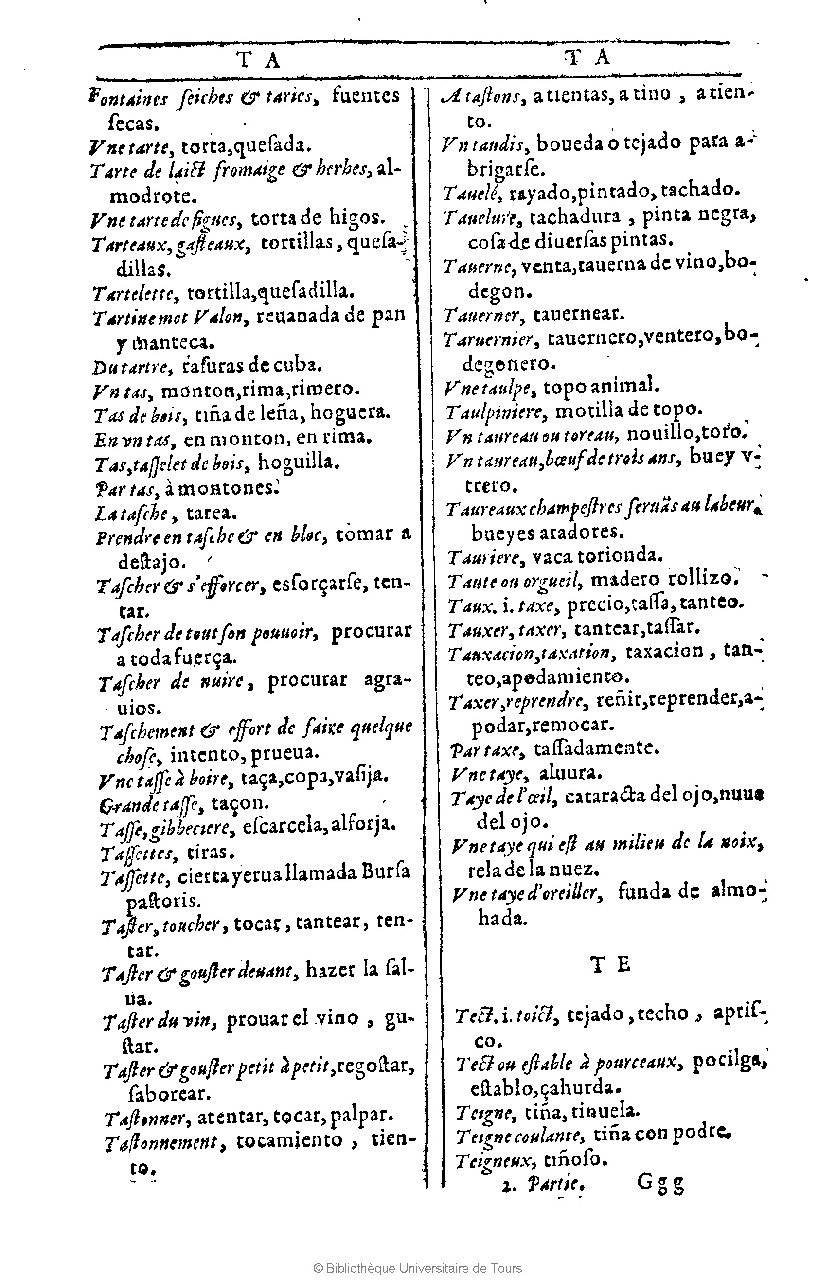 T A
Fontaines seiches & taries, fuentes
secas.
Vne tarte, torta,quesada.
Tarte de laict fromaige & herbes, al-
modrote.
Vne tarte de figues, torta de higos.
Tarteaux, gasteaux, tortillas, quesa-
dillas.
Tartelette, tortilla,quesadilla.
Tartine mot Valon, reuanada de pan
y manteca.
Du tartre, rasuras de cuba.
Vn tas, monton,rima,rimero.
Tas de bois, tiña de leña, hoguera.
En vn tas, en monton, en rima.
Tas,tasselet de bois, hoguilla.
Par tas, à montones.
La tasche, tarea.
Prendre en tasche & en bloc, tomar a
destajo.
Tascher & s'efforcer, esforçarse, ten-
tar.
Tascher de tout son pouuoir, procurar
a toda fuerça.
Tascher de nuire, procurar agra-
uios.
Taschement & effort de faire quelque
chose, intento, prueua.
Vne tasse à boire, taça,copa,vasija.
Grande tasse, taçon.
Tasse, gibbeciere, escarcela,alforja.
Tassettes, tiras.
Tassette, cierta yerua llamada Bursa
pastoris.
Taster,toucher, tocar, tantear, ten-
tar.
Taster & gouster deuant, hazer la sal-
ua.
Taster du vin, prouar el vino, gu-
star.
Taster & gouster petit à petit,regostar,
saborear.
Tastonner, atentar, tocar, palpar.
Tastonnement, tocamiento, tien-
to.
T A
A tastons, a tientas, a tino, a tien-
to.
Vn taudis, boueda o tejado para a-
brigarse.
Tauelé, rayado,pintado,tachado.
Tauelure, tachadura, pinta negra,
cosa de diuersas pintas.
Tauerne, venta,tauerna de vino,bo-
degon.
Tauerner, tauernear.
Taruernier, tauernero,ventero,bo-
degonero.
Vne taulpe, topo animal.
Taulpiniere, motilla de topo.
Vn taureau ou toreau, nouillo,toro.
Vn taureau,bœuf de trois ans, buey v-
trero.
Taureaux champestres seruãs au labeur,
bueyes aradores.
Tauriere, vaca torionda.
Taute ou orgueil, madero rollizo.
Taux. i. taxe, precio,tassa,tanteo.
Tauxer, taxer, tantear,tassar.
Tauxacion,taxation, taxacion, tan-
teo,apodamiento.
Taxer,reprendre, reñir,reprender,a-
podar,remocar.
Par taxe, tassadamente.
Vne taye, aluura.
Taye de l'œil, cataracta del ojo,nuue
del ojo.
Vne taye qui est au milieu de la noix,
rela de la nuez.
Vne taye d'oreiller, funda de almo-
hada.
T E
Tect. i. toict, tejado, techo, apris-
co.
Tect ou estable à pourceaux, pocilga,
establo,çahurda.
Teigne, tiña,tinuela.
Teigne coulante, tiña con podre.
Teigneux, tiñoso.
2. Partie. Ggg
© Bibliothèque Universitaire de Tours